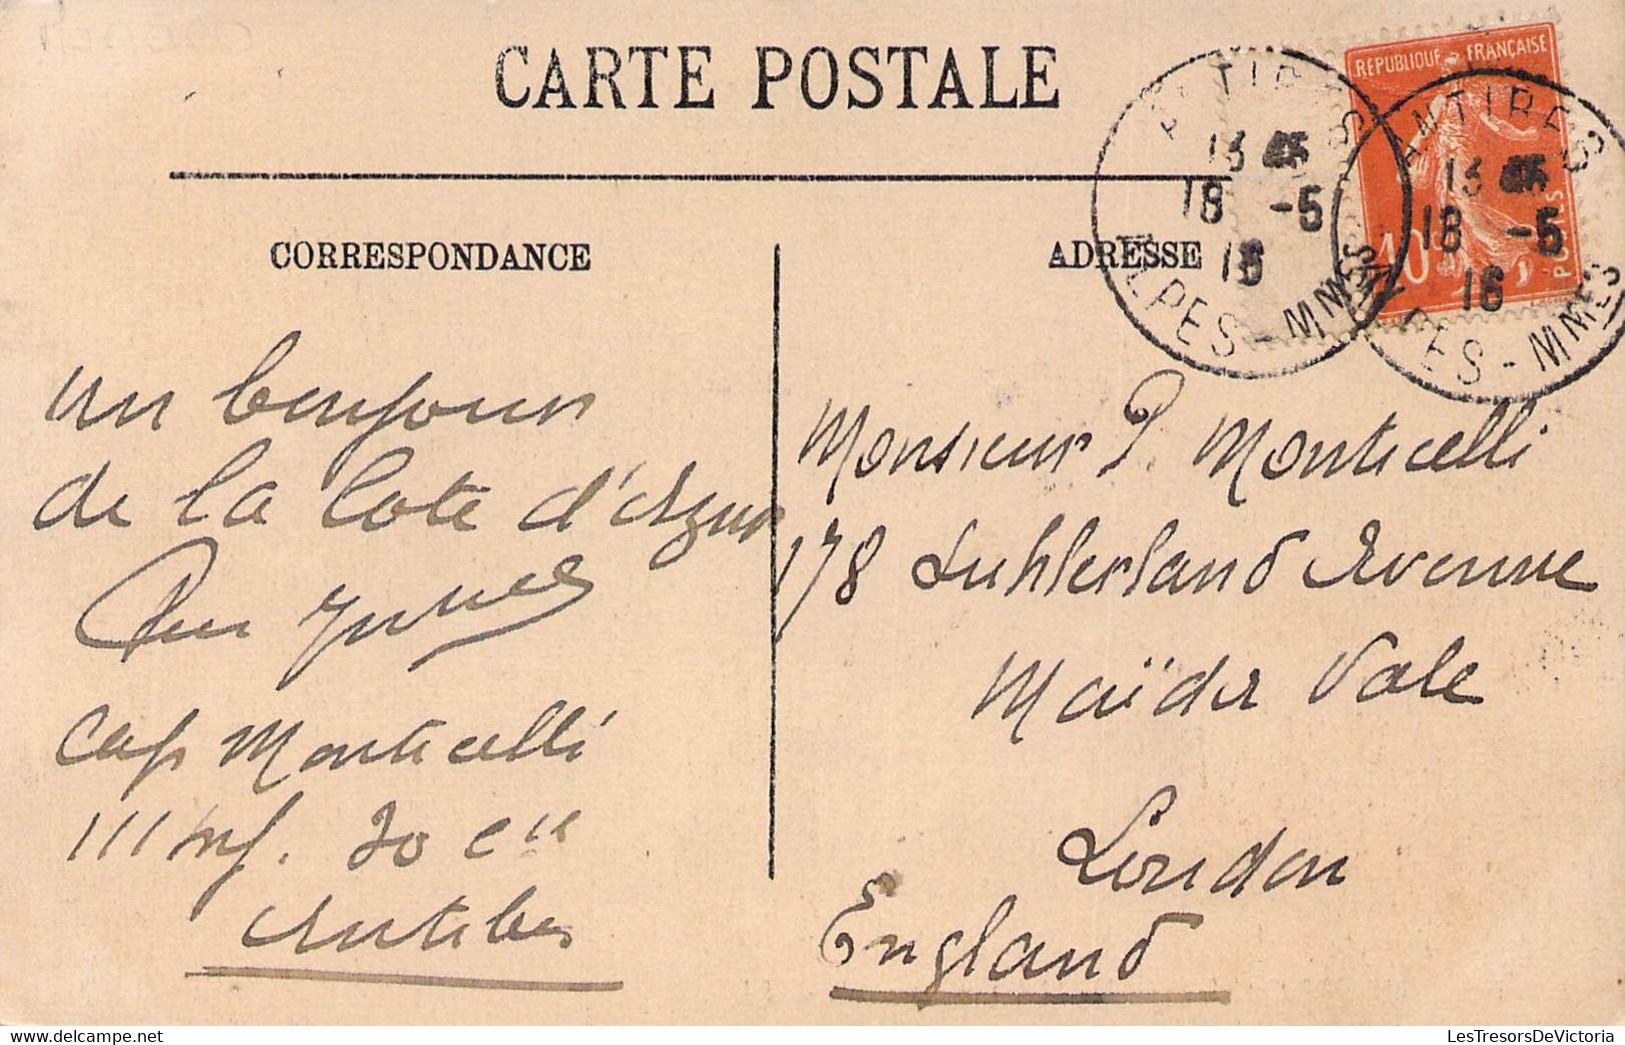 CARTE POSTALE
REPUBLIQUE FRANÇAISE
10
POSTES
ANTIBES
13 45
18 -5
16
ALPES-MMES
ANTIBES
13 45
18 -5
16
ALPES-MMES
CORRESPONDANCE
ADRESSE
un bonjour
de la Cote d'Azur
Cap Monticelli
111 Inf. 30 Cie
Antibes
Monsieur P. Monticelli
178 Suhterland Avenue
Maïda Vale
London
England
LesTresorsDeVictoria